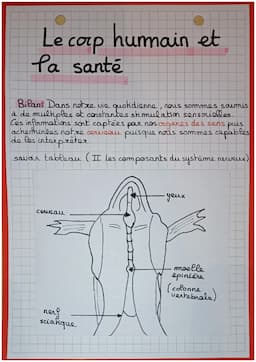 Le corp humain et
la santé
Bilan: Dans notre vie quotidienne, nous sommes soumis
à de multiples et constantes stimulation sensorielles.
Ces informations sont captées par nos organes des sens puis
acheminées notre cerveau puisque nous sommes capables
de les interpréter.
sous tableau (II les composants du système nerveux)
yeux
cerveau
moelle
épinière
(colonne
vertebrale)
nerf
sciatique